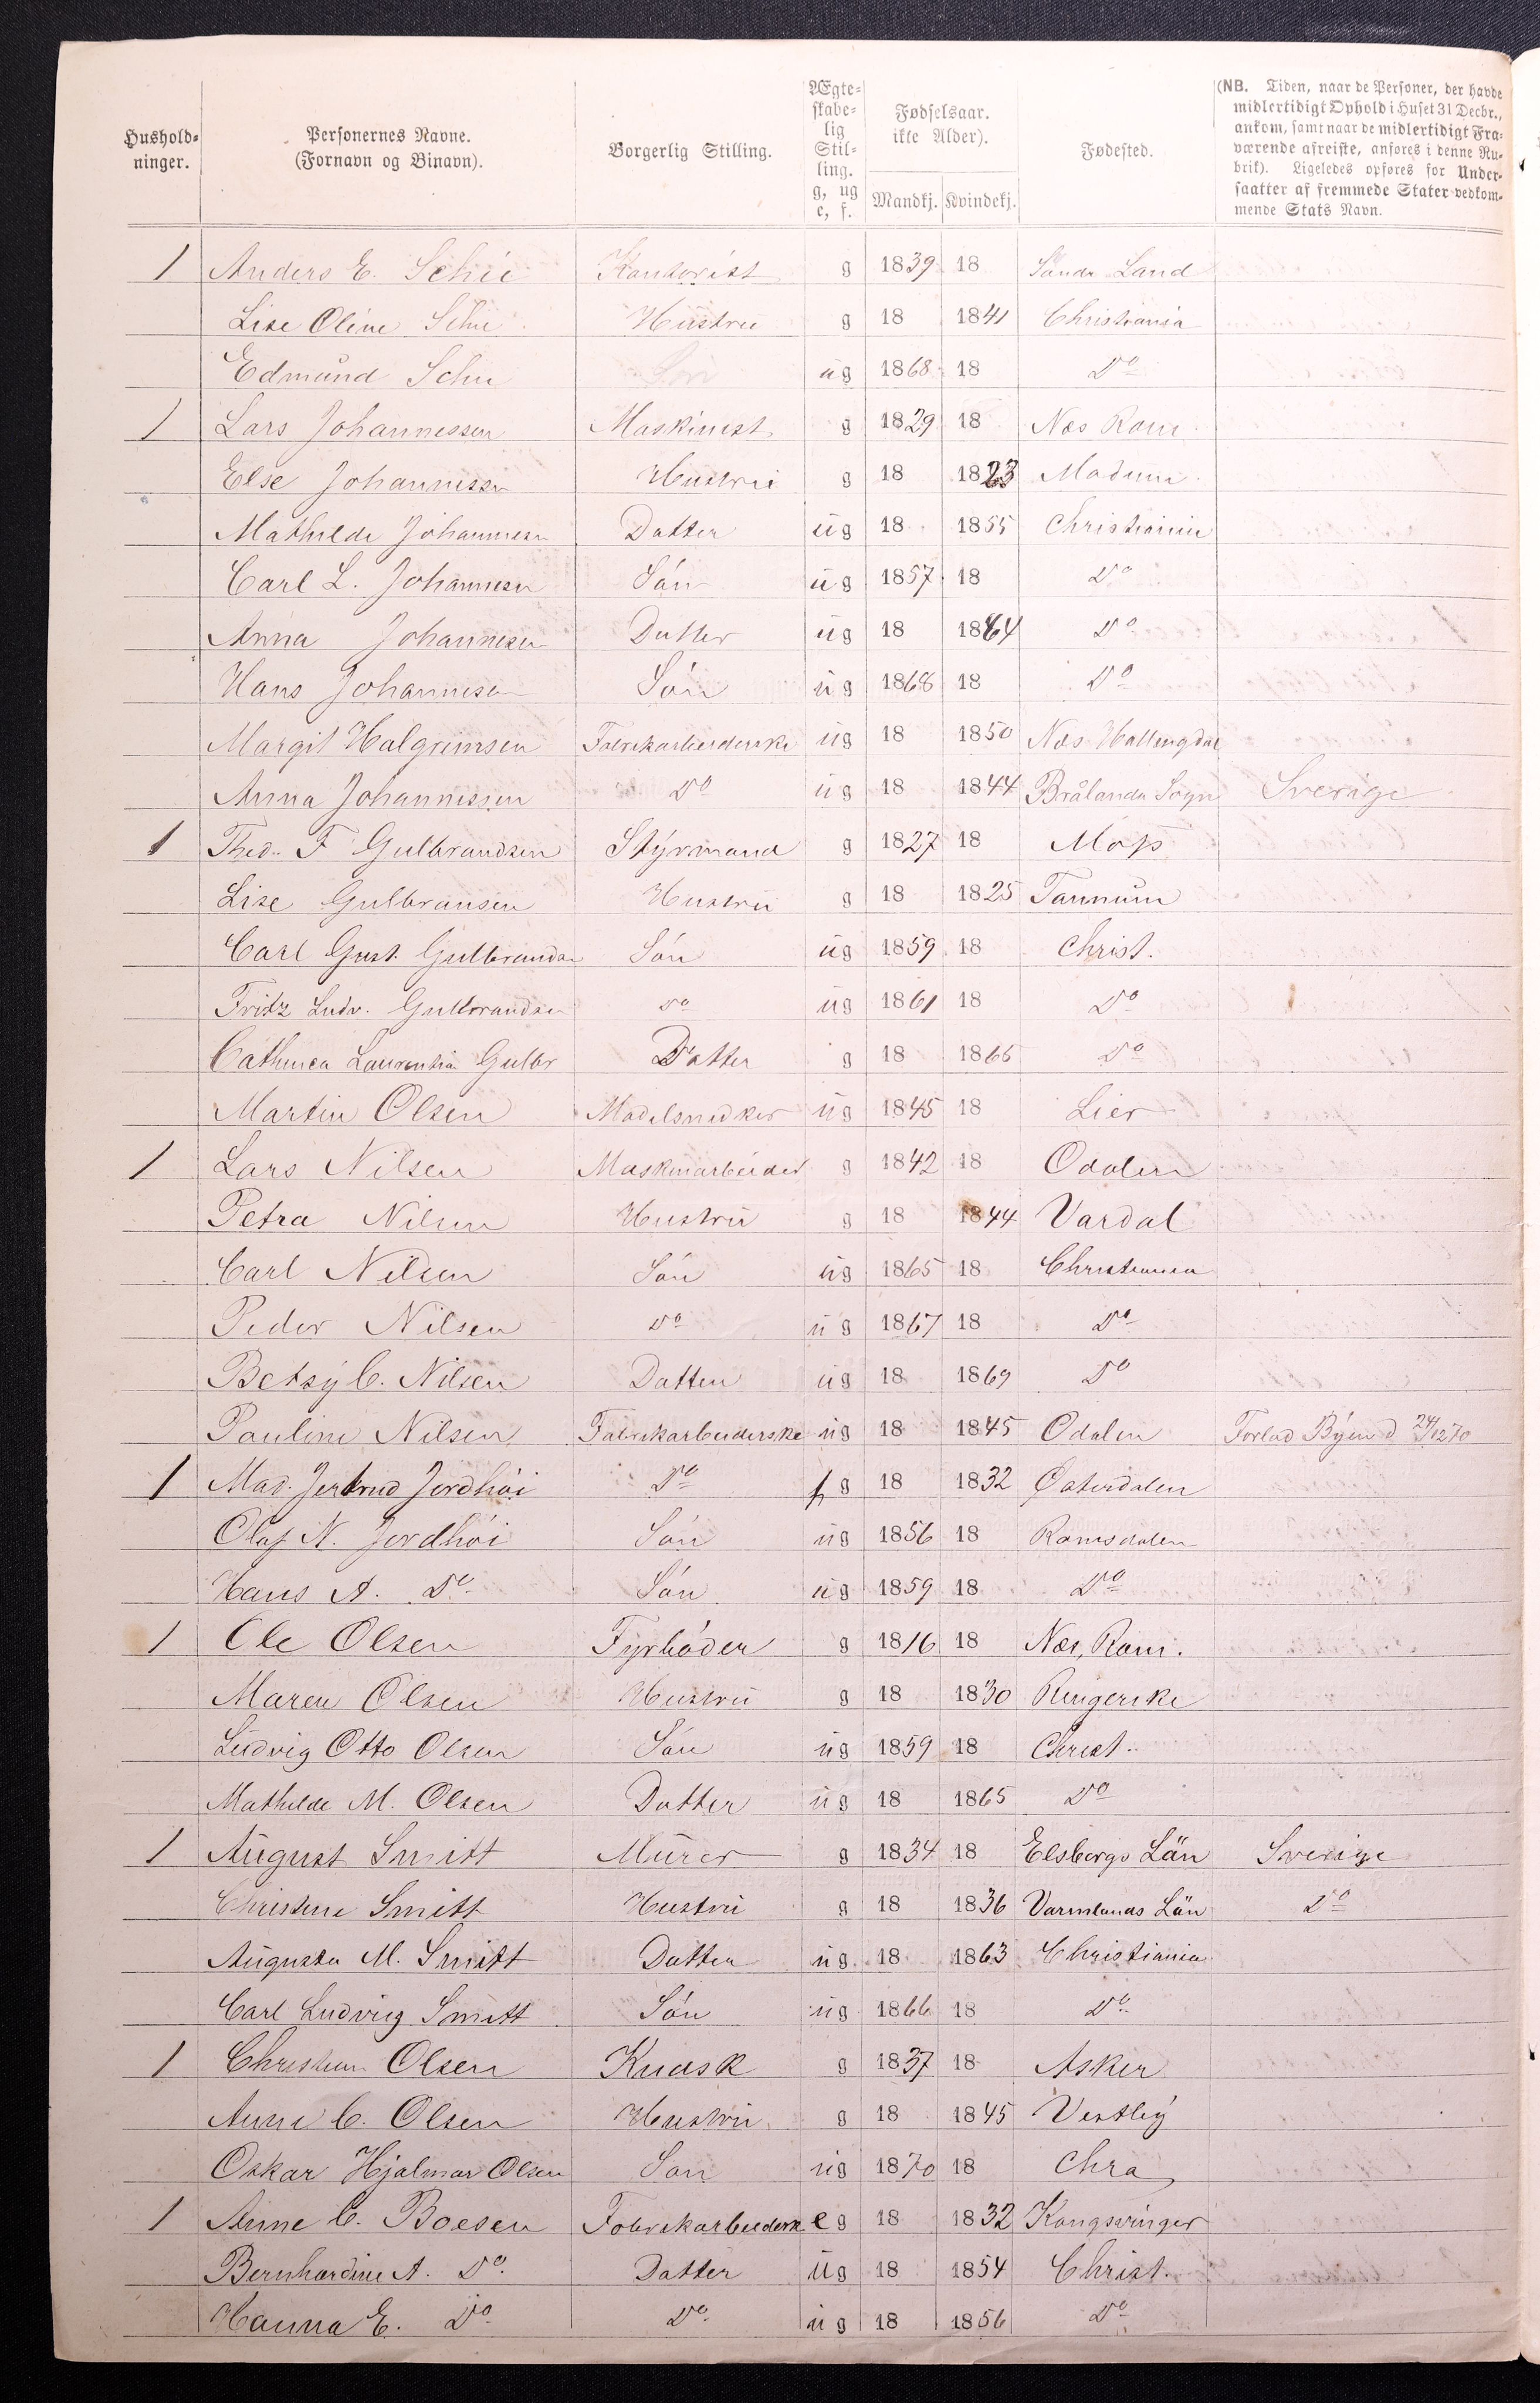 Hushold-
ninger.
Personernes Navne.
(Fornavn og Binavn).
Borgerlig Stilling.
Ægte-
skabe-
lig
Stil-
ling.
g, ug
e, f.
Fødselsaar.
ikke Alder).
Mandkj. Kvindekj.
Fødested.
(NB. Tiden, naar de Personer, der havde
midlertidigt Ophold i Huset 31 Decbr.,
ankom, samt naar de midlertidigt Fra-
værende afreiste, anføres i denne Ru-
brik). Ligeledes opføres for Under-
saatter af fremmede Stater vedkom-
mende Stats Navn.
1 Anders E. Schie Kontorist g 1839 18 Søndr Land
Lise Oline Schie Hustru g 18 1841 Christiania
Edmund Schie Søn ug 1868 18 Do
1 Lars Johannessen Maskinist g 1829 18 Næs Rom
Else Johannessen Hustru g 18 1823 Modum
Mathilde Johannesen Datter ug 18 1855 Christiania
Carl L. Johannesen Søn ug 1857 18 Do
Anna Johannesen Datter ug 18 1864 Do
Hans Johannesen Søn ug 1868 18 Do
Margit Halgrimsen Fabrikarbeiderske ug 18 1850 Næs Hallingdal
Anna Johannessen Do ug 18 1844 Brålanda Sogn Sverige
1 Thed. F Gulbrandsen Styrmand g 1827 18 Moss
Lise Gulbransen Hustru g 18 1825 Tannum
Carl Gust. Gulbrandsen Søn ug 1859 18 Christ.
Fritz Ludv. Gulbrandsen Do ug 1861 18 Do
Laurentia Gulbr Datter g 18 1865 Do
Martin Olsen Modelsnedker ug 1845 18 Lier
1 Lars Nilsen Maskinarbeider g 1842 18 Odalen
Petra Nilsen Hustru g 18 1844 Vardal
Carl Nilsen Søn ug 1865 18 Christiania
Peder Nilsen Do ug 1867 18 Do
Betsy C. Nilsen Datter ug 18 1869 Do
Pauline Nilsen Fabrikarbeiderske ug 18 1845 Odalen Forlod Byen d 24/12 70
1 Mad. Jertrud Jordhøi Do f g 18 1832 Østerdalen
Olaf N. Jordhøi Søn ug 1856 18 Romsdalen
Hans A. Do Søn ug 1859 18 Do
1 Ole Olsen Fyrbøder g 1816 18 Næs, Rom.
Maren Olsen Hustru g 18 1830 Ringerike
Ludvig Otto Olsen Søn ug 1859 18 Christ.
Mathilde M. Olsen Datter ug 18 1865 Do
1 August Smitt Murer g 1834 18 Elsborgs Län Sverige
Christine Smitt Hustru g 18 1836 Varmlands Län Do
Augusta M. Smitt Datter ug 18 1863 Christiania
Carl Ludvig Smitt Søn ug 1866 18 Do
1 Christian Olsen Kudsk g 1837 18 Asker
Anne C. Olsen Hustru g 18 1845 Vestby
Oskar Hjalmar Olsen Søn ug 1870 18 Chra
1 Anne C. Boesen Fabrikarbeiderske e g 18 1832 Kongsvinger
Bernhardine A. Do Datter ug 18 1854 Christ.
Hanna E. Do Do ug 18 1856 Do